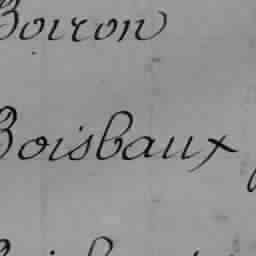 Boiron
Boisbaux